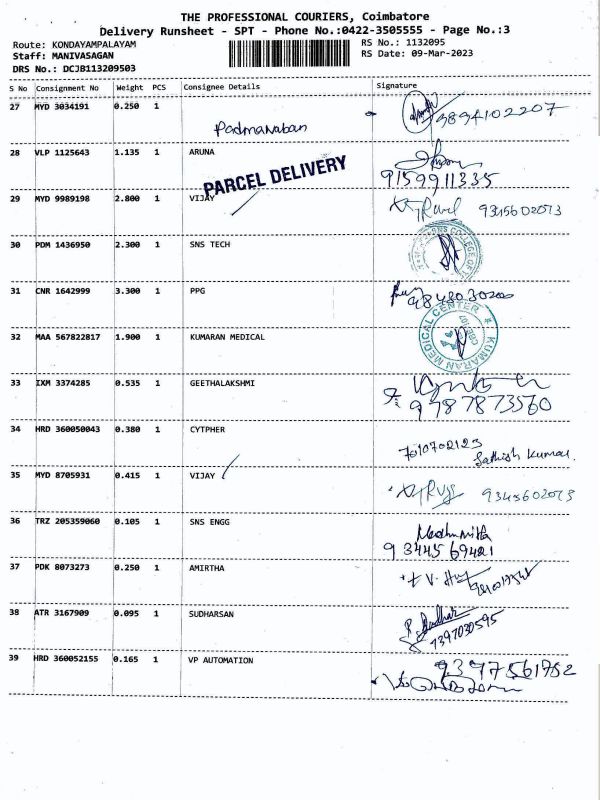 THE PROFESSIONAL COURIERS, Coimbatore
Delivery Runsheet - SPT - Phone No.:0422-3505555 - Page No.:3
Route: KONDAYAMPALAYAM
Staff: MANIVASAGAN
DRS No.: DCJB113209503
RS No.: 1132095
RS Date: 09-Mar-2023
S No Consignment No Weight PCS Consignee Details Signature
27 MYD 3034191 0.250 1 Padmanaban 9894102207
28 VLP 1125643 1.135 1 ARUNA
9159911335
PARCEL DELIVERY
29 MYD 9989198 2.800 1 VIJAY 9345602013
30 PDM 1436950 2.300 1 SNS TECH
31 CNR 1642999 3.300 1 PPG
32 MAA 567822817 1.900 1 KUMARAN MEDICAL
KUMARAN MEDICAL CENTER
33 IXM 3374285 0.535 1 GEETHALAKSHMI
9787873560
34 HRD 360050043 0.380 1 CYTPHER 7010702123
Sathish Kumar.
35 MYD 8705931 0.415 1 VIJAY 9345602013
36 TRZ 205359060 0.105 1 SNS ENGG
9344569421
37 PDK 8073273 0.250 1 AMIRTHA
38 ATR 3167909 0.095 1 SUDHARSAN
7397030595
39 HRD 360052155 0.165 1 VP AUTOMATION